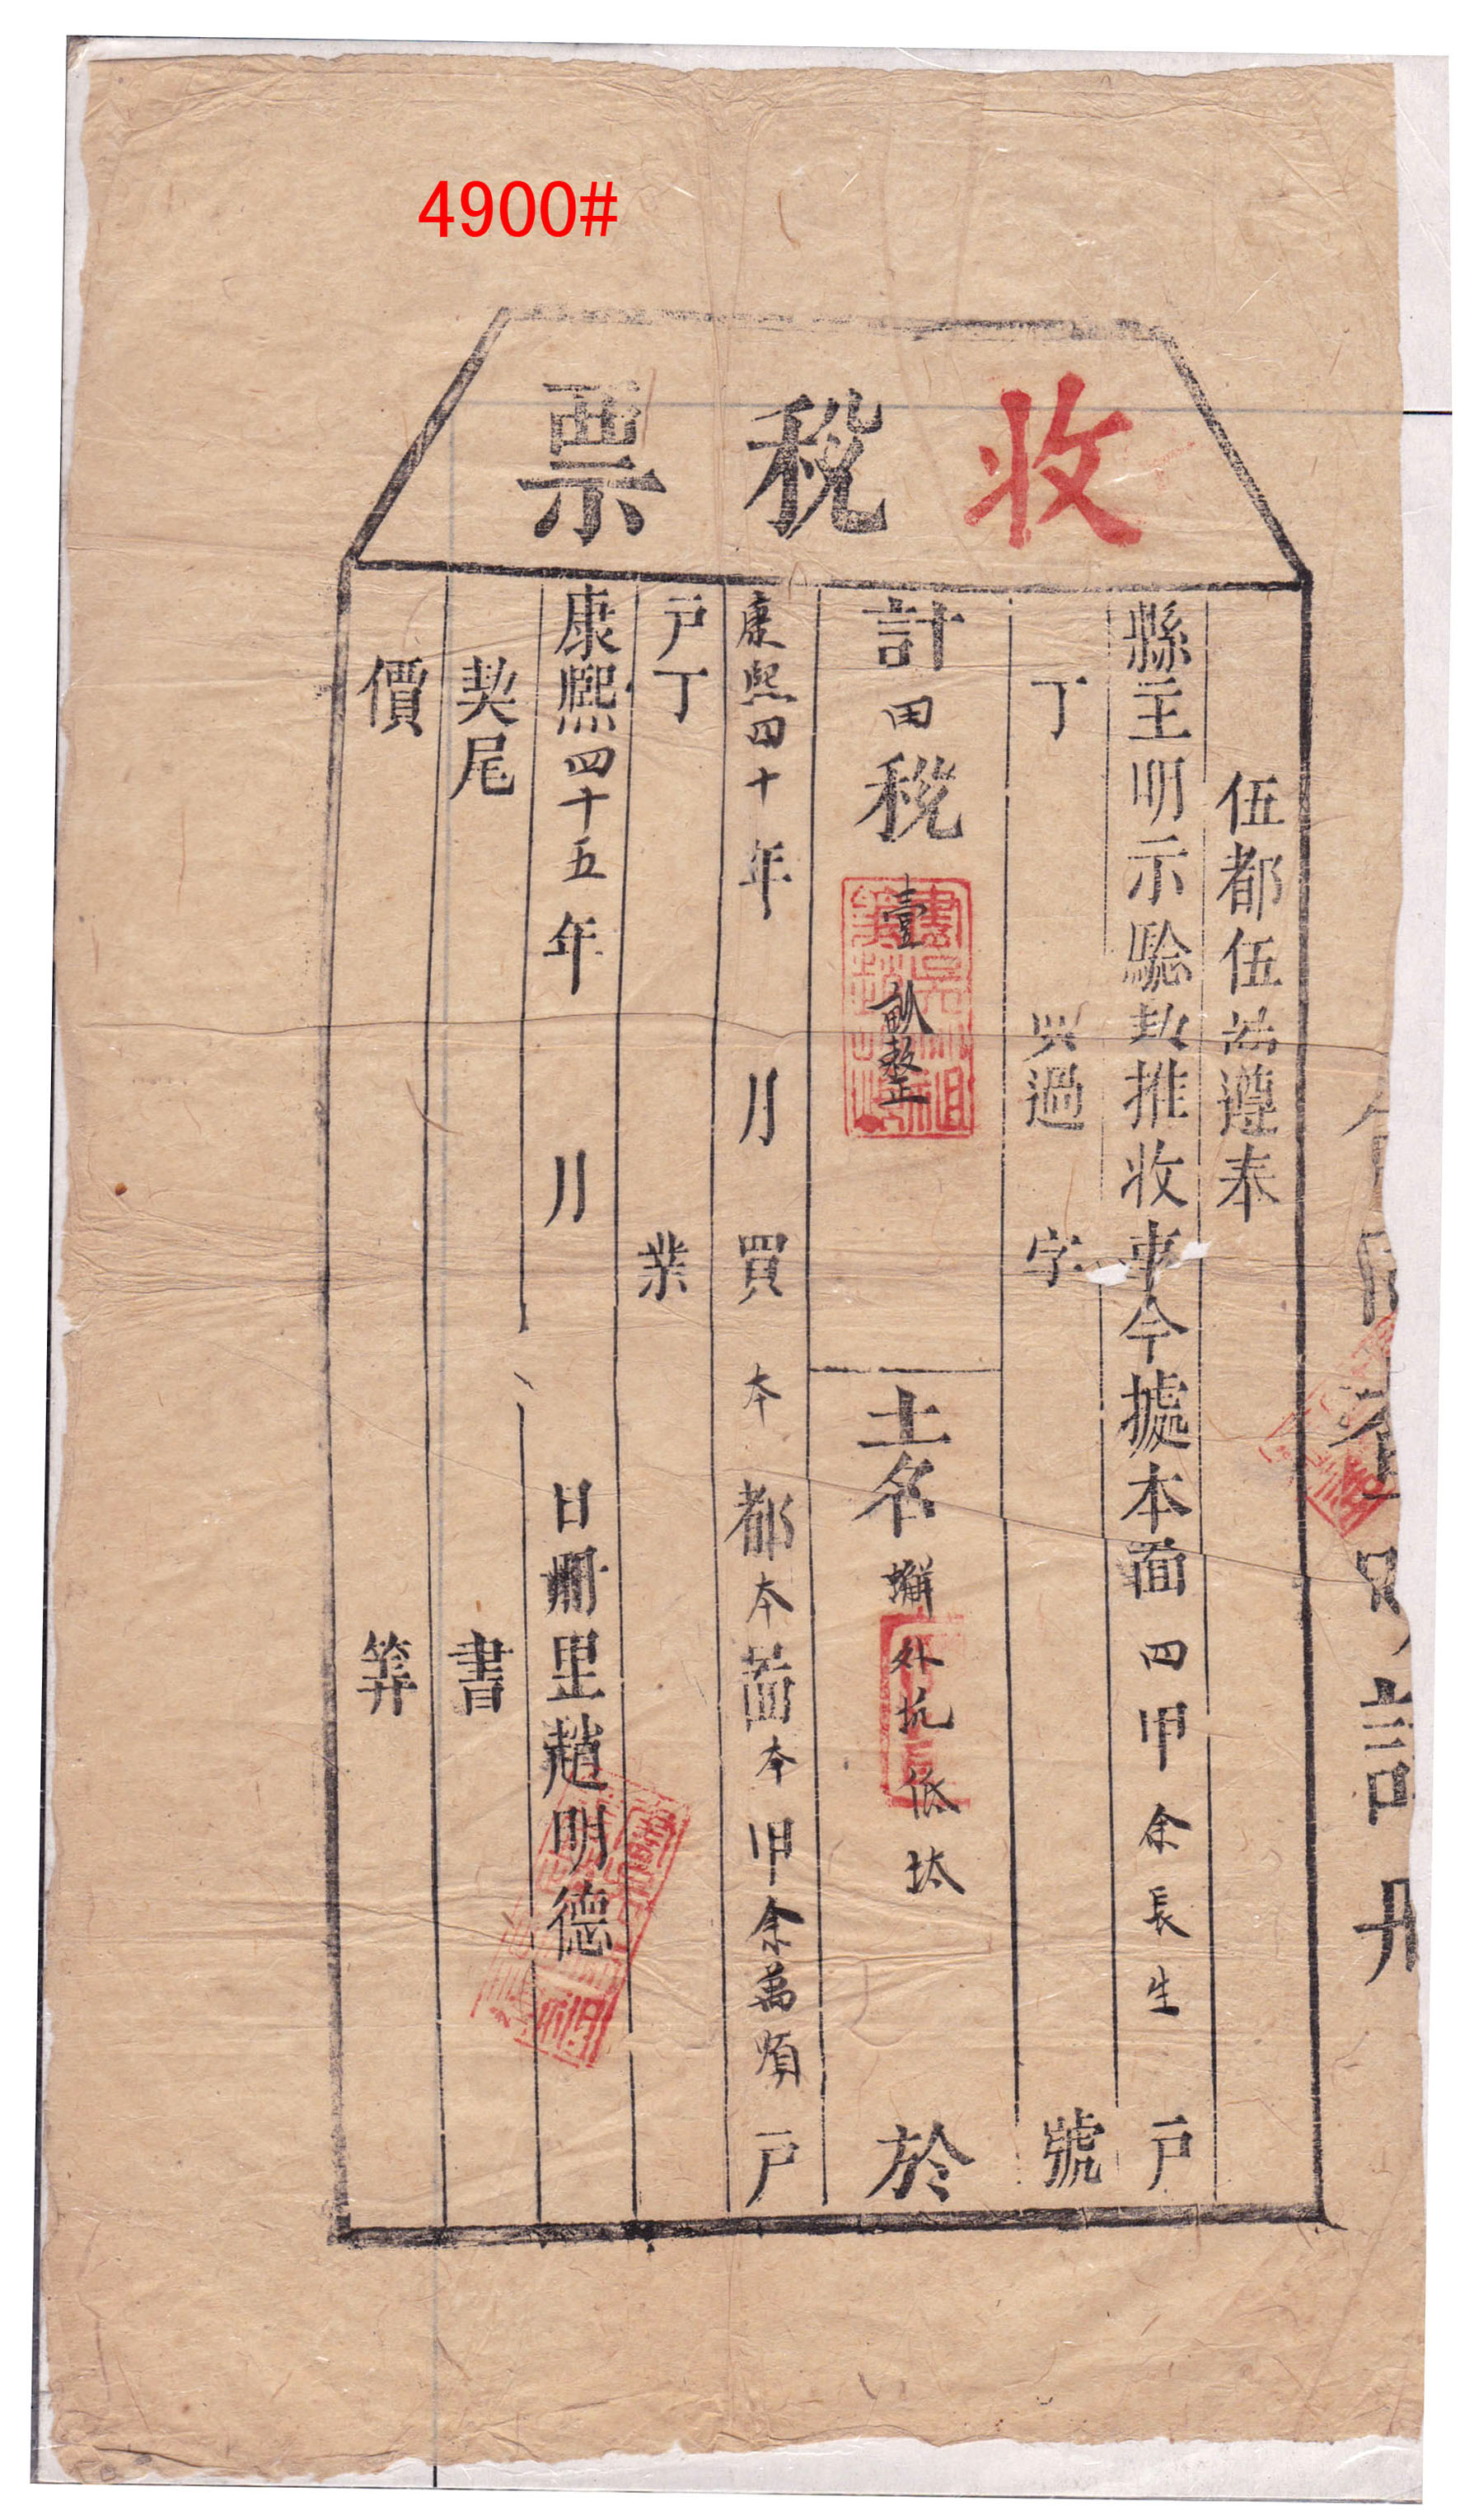 4900#
收稅票
伍都伍啚遵奉
縣主明示驗契推收事今據本啚四甲余長生戶
丁 與過 字 號
計田稅壹畝整 土名 外坑低坔 於
康熙四十年 月買本都本啚本甲余萬順戶
戶丁 業
康熙四十五年 月 日冊里趙明德
契尾 書
價 筭